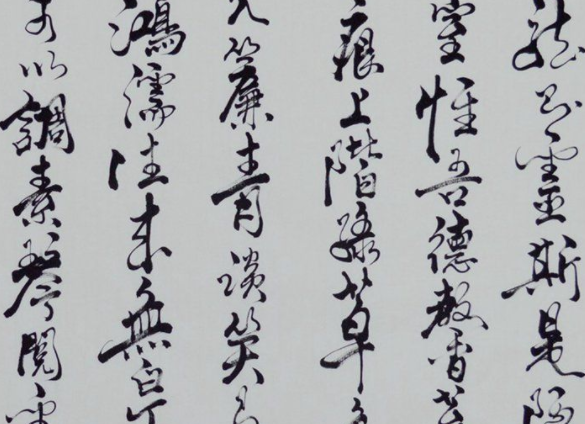 龍則靈斯是陋
室惟吾德馨香苔
痕上階綠草色
入簾青談笑有
鴻儒往來無白丁
可以調素琴閱金